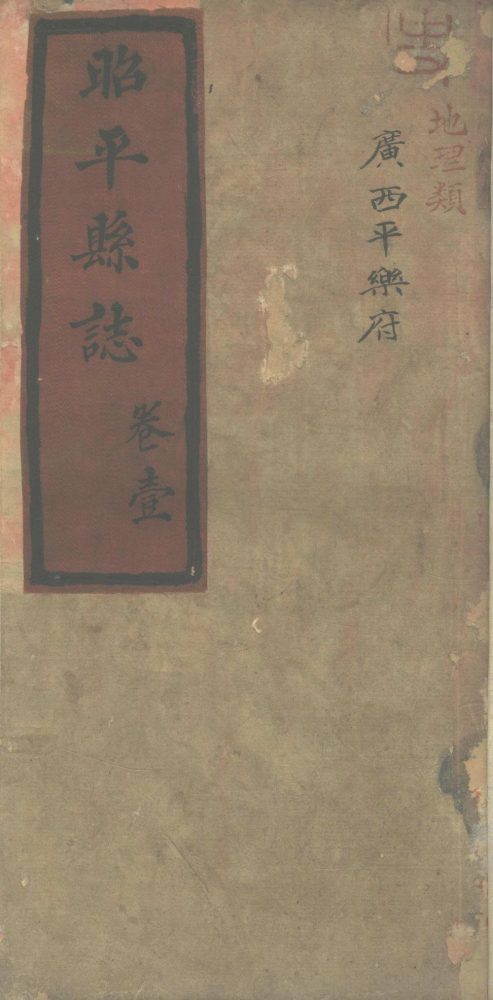 史
地理類
廣西平樂府
昭平縣誌
卷壹